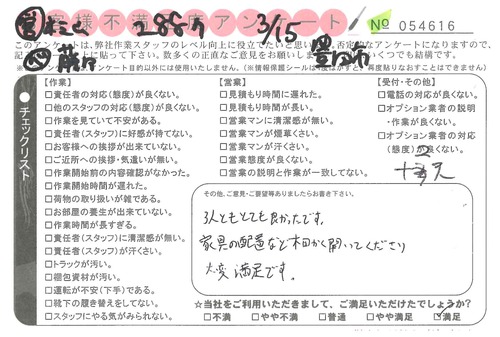 お客様不満足度アンケート
2887
3/15
豊田市
No 054616
このアンケートは、弊社作業スタッフのレベル向上に役立てたいと思い
否定的なアンケートになりますので、
数多くの正直なご意見をお願いします
いくつでも結構です。
アンケート目的以外には使用いたしません。
チェックリスト
【作業】
□責任者の対応(態度)が良くない。
□他のスタッフの対応(態度)が良くない。
□作業を見ていて不安がある。
□責任者(スタッフ)に好感が持てない。
□お客様への挨拶が出来ていない。
□ご近所への挨拶・気遣いが無い。
□作業開始前の内容確認がなかった。
□作業開始時間が遅れた。
□荷物の取り扱いが雑である。
□お部屋の養生が出来ていない。
□作業時間が長すぎる。
□責任者(スタッフ)に清潔感が無い。
□責任者(スタッフ)が汗くさい。
□トラックが汚い。
□梱包資材が汚い。
□運転が不安(下手)である。
□靴下の履き替えをしてない。
□スタッフにやる気がみられない。
【営業】
□見積もり時間に遅れた。
□見積もり時間が長い。
□営業マンに清潔感が無い。
□営業マンが煙草くさい。
□営業マンが汗くさい。
□営業態度が良くない。
□営業の説明と作業が一致してない。
【受付・その他】
□電話の対応が良くない。
□オプション業者の説明
・作業が良くない。
□オプション業者の対応
(態度)が良くない。
その他、ご意見・ご要望等ありましたらお書き下さい。
3人ともとても良かったです。
家具の配置など
聞いてくださり
大変満足です。
☆当社をご利用いただきまして、ご満足いただけたでしょうか?
□不満 □やや不満 □普通 □やや満足 ☑満足